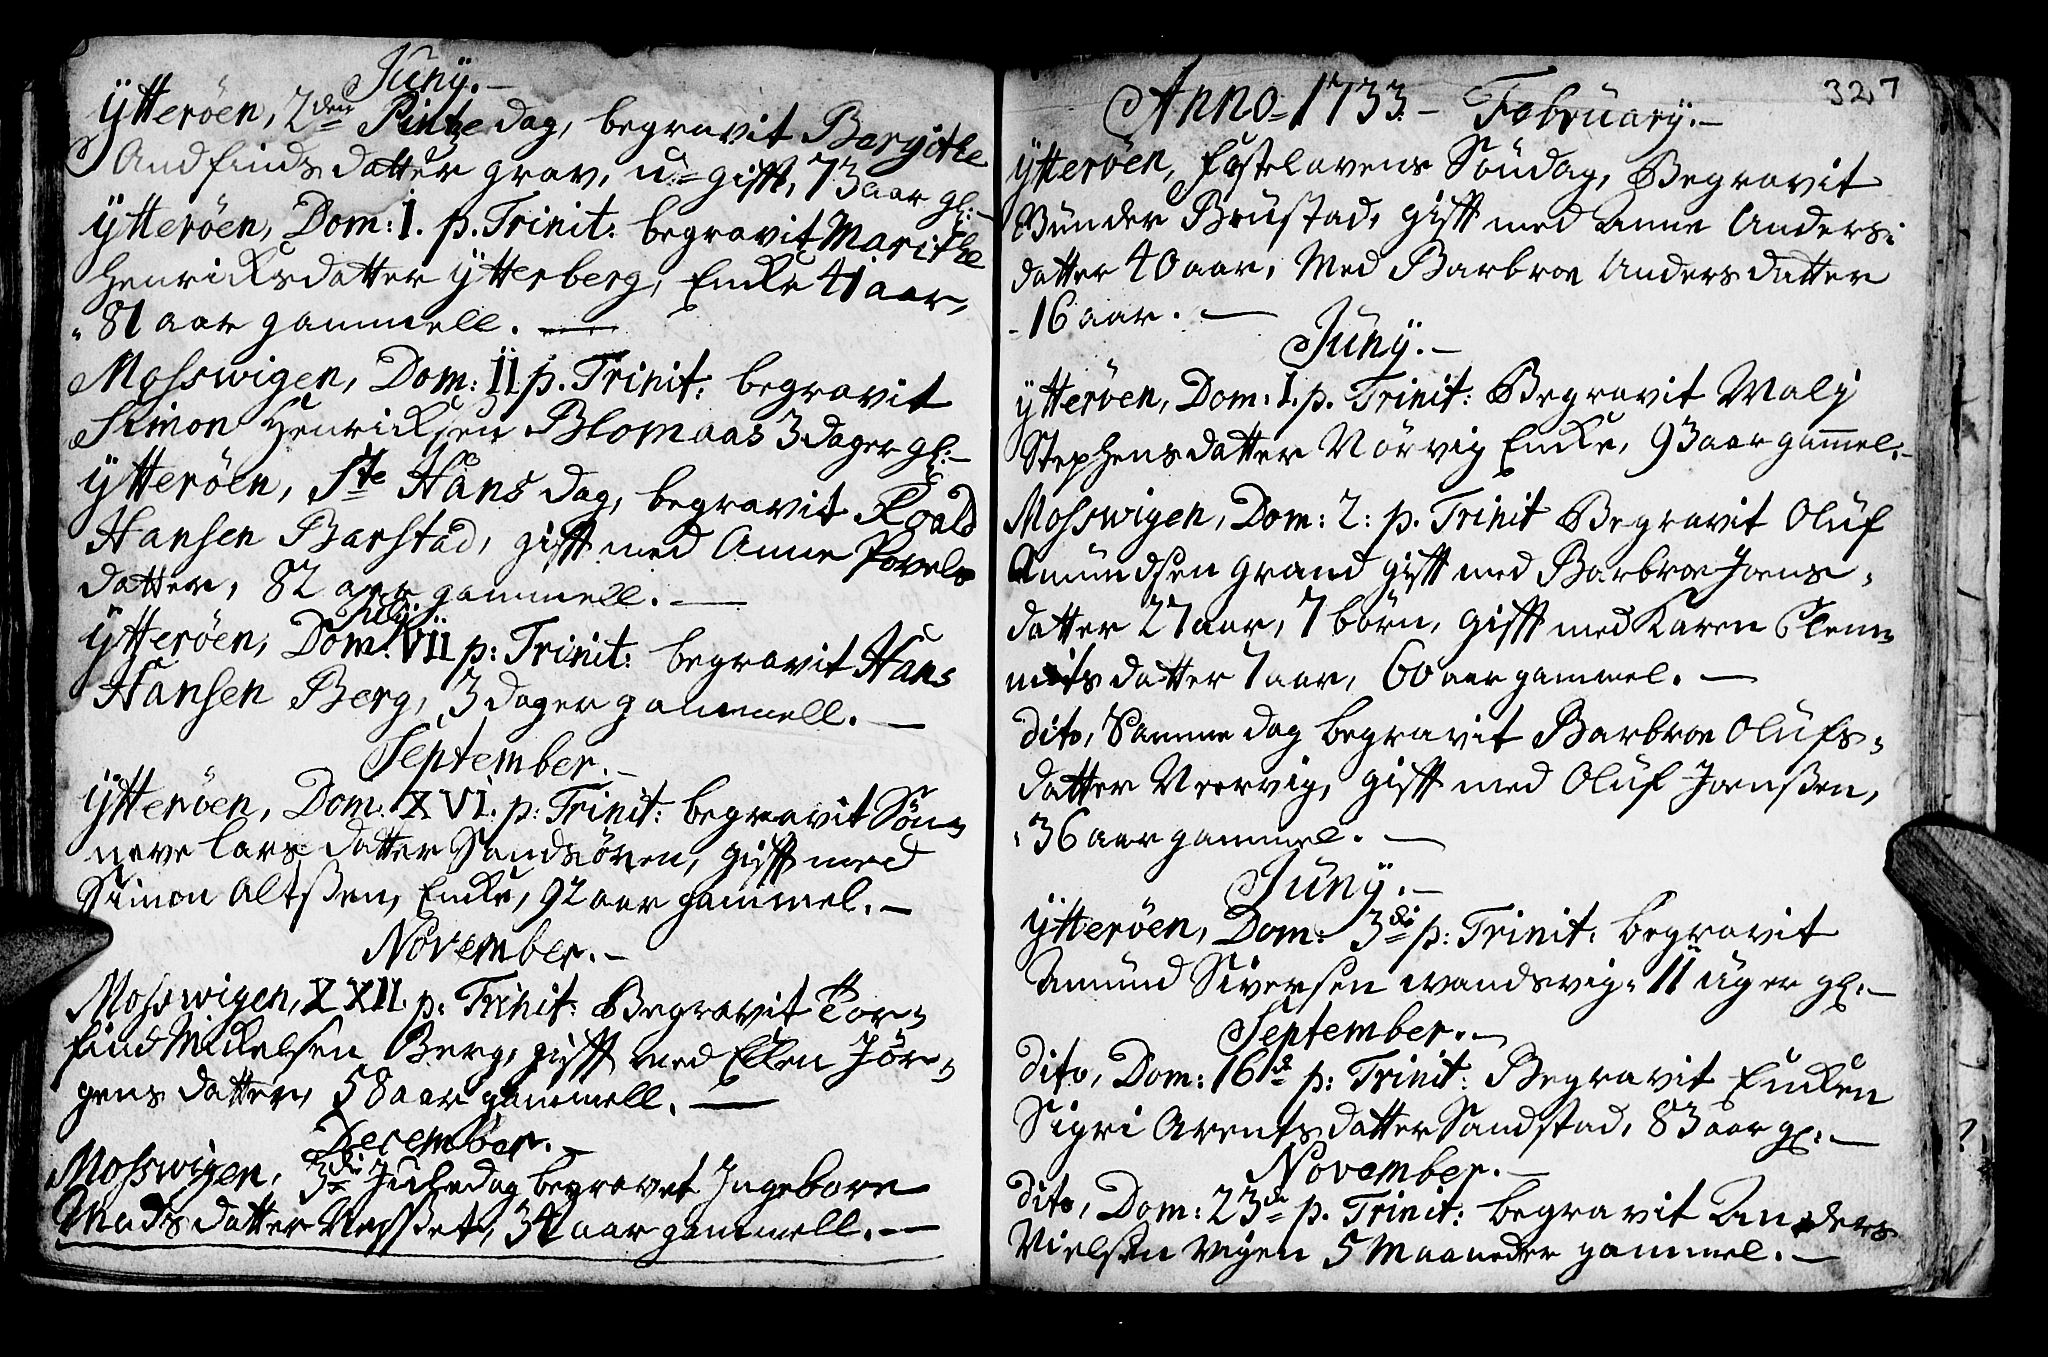 Juny.-
Ytterøen, 2den Pintze dag, begravit Beryithe
Andfindsdatter grav, u-gifft, 73 aar gl:-
Ytterøen, Dom: I. p. Trinit: begravit Marithe
Henricksdatter Ytterberg, Encke 41 aar,
81 aar gammell. —
Mosswigen, Dom: II p. Trinit: begravit
Simon Henricksen Blomaas 3 dager gl:-
Ytterøen, Ste Hans dag, begravit Roald
Hansen Barstad, gifft med Anne Povels
datter, 82 aar gammell. —
July.
Ytterøen, Dom: VII p: Trinit: begravit Hans
Hansen Berg, 3 dager gammell. —
September.-
Ytterøen, Dom. XVI. p: Trinit: begravit Søn-
neve Lars datter Sandsøren, gifft med
Simon Altssen, Encke, 92 aar gammel. -
November. -
Mosswigen, XXII. p: Trinit: Begravit Tor-
find Mickelsen Berg, gifft med Ellen Jør-
gens datter, 58 aar gammell. —
December. -
Mosswigen, 3die Juledag begravet Ingeborre
Mads datter Nessset, 34 aar gammell. —
327
Anno 1733. - February. -
Ytterøen, Fastelavens Søndag, Begravit
Gunder Brustad, gifft med Anne Anders-
datter 40 aar, Med Barbroe Anders datter
16 aar. —
Juny. -
Ytterøen, Dom: I. p. Trinit: Begravit Malj
Stephens datter Nørvig Encke, 93 aar gammel. -
Mosswigen, Dom: 2: p. Trinit Begravit Oluf
Amundsen Grand gifft med Barbroe Joens-
datter 27 aar, 7 børn, gifft med Karen Clem-
mits datter 7 aar, 60 aar gammel. —
dito, Samme dag begravit Barbroe Olufs-
datter Nervig, gifft med Oluf Joenssen,
36 aar gammel. —
Juny. -
Ytterøen, Dom: 3die p: Trinit. begravit
Amund Siversen Wandsvig. 11 uger gl. -
September. -
dito, Dom: 16de p: Trinit: Begravit Encken
Sigri Arents datter Sandstad, 83 aar gl: -
November. -
dito, Dom: 23de p. Trinit: begravit Anders
Nielsen Vigen 5 Maaneder gammel. -